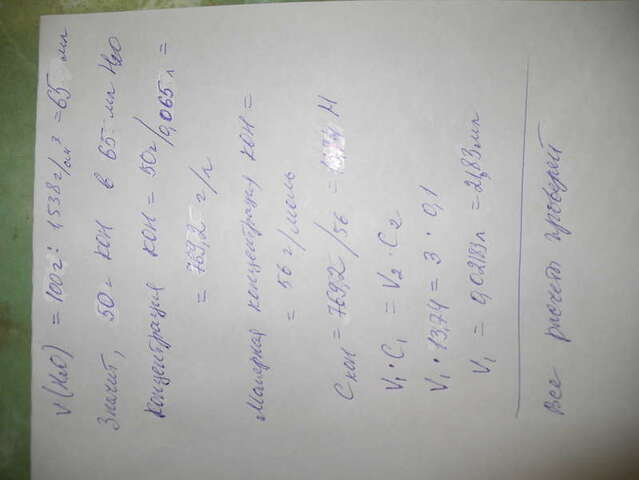 V(H₂O) = 100г : 1,538г/см³ = 65 мл
Значит, 50г KOH в 65 мл H₂O
Концентрация KOH = 50г/0,065л =
= 769,2 г/л
Молярная концентрация KOH =
= 56 г/моль
C KOH = 769,2/56 = 13,74 Н
V₁·C₁ = V₂·C₂
V₁·13,74 = 3·0,1
V₁ = 0,02183л = 21,83мл
Все расчет проверен